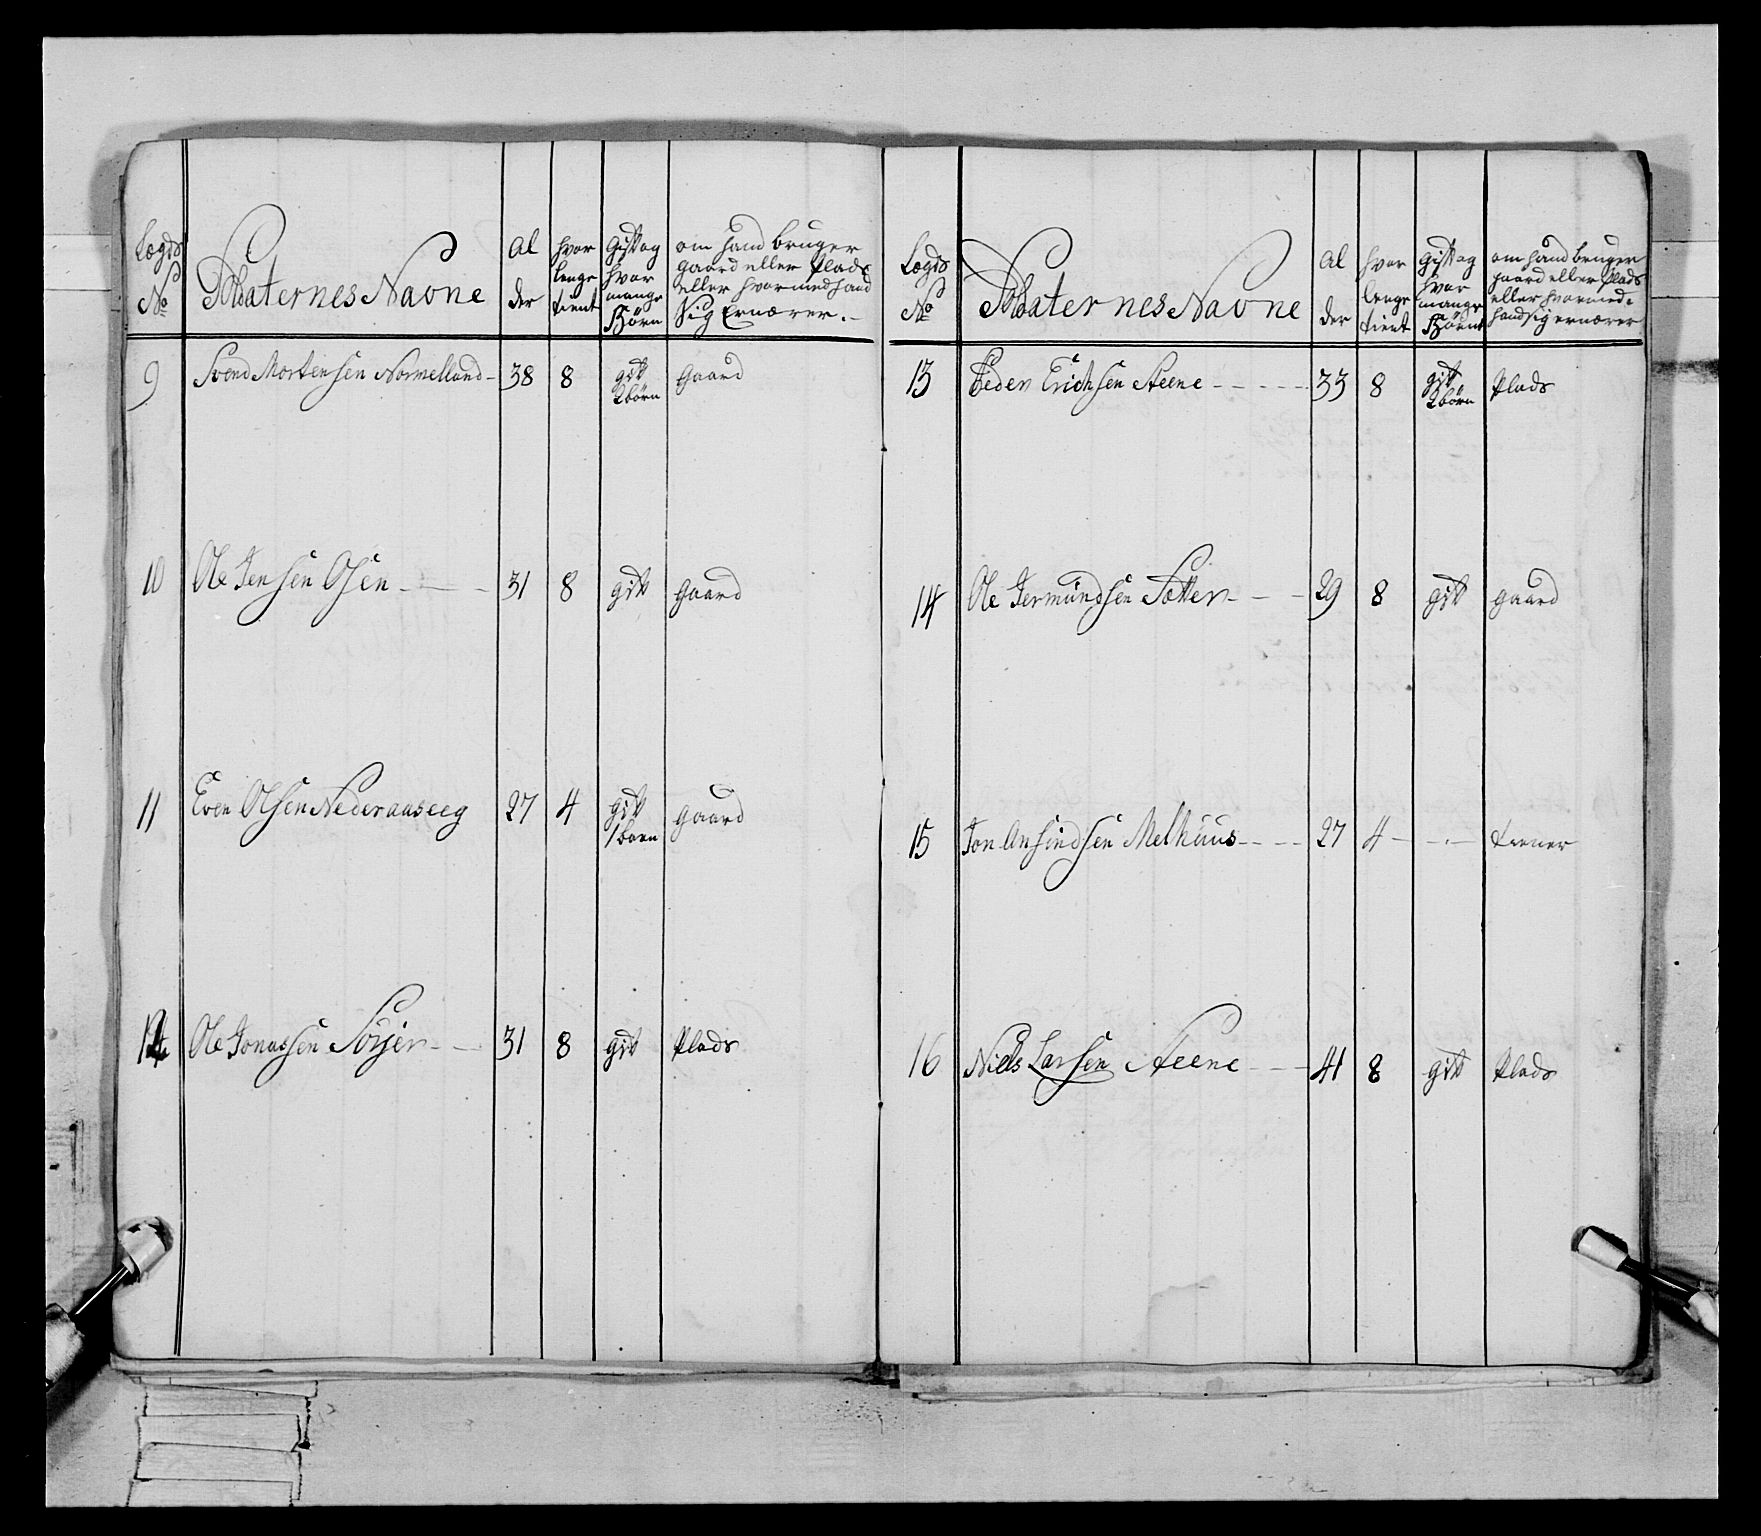 Lægds No | Soldaternes Navne | Al der | hvor lenge tient | Gift og hvor mange Børn | om hand bruger gaard eller Plads eller hvormed hand Sig Ernærer.
9 | Svend Mortensen Normelland | 38 | 8 | gift 2 børn | gaard
10 | Ole Jensen Osen | 31 | 8 | gift | gaard
11 | Even Olsen Nederaaseeg | 27 | 4 | gift 1 barn | gaard
12 | Ole Jonassen Sörjer | 31 | 8 | gift | Plads
Lægds No | Soldaternes Navne | Al der | hvor lenge tient | Gift og hvor mange Børn | om hand bruger gaard eller Plads eller hvormed hand sig ernærer
13 | Peder Erichsen Steene | 33 | 8 | gift 2 børn | Plads
14 | Ole Jermundsen Sætter | 29 | 8 | gift | gaard
15 | Jon Ansindsen Melhuus | 27 | 4 | tiener
16 | Niels Larsen Steene | 41 | 8 | gift | Plads